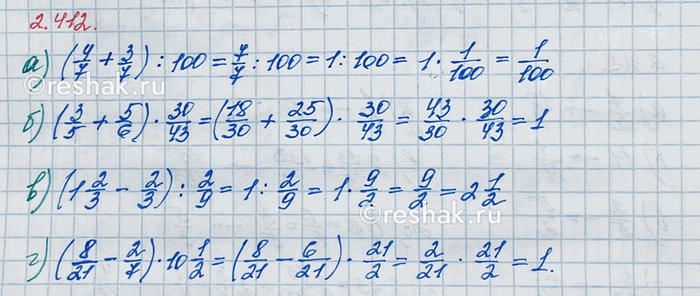 2.412.
а) (4/7 + 3/7) : 100 = 7/7 : 100 = 1 : 100 = 1 · 1/100 = 1/100
б) (3/5 + 5/6) · 30/43 = (18/30 + 25/30) · 30/43 = 43/30 · 30/43 = 1
©reshak.ru
в) (1 2/3 − 2/3) : 2/9 = 1 : 2/9 = 1 · 9/2 = 9/2 = 2 1/2
©reshak.ru
г) (8/21 − 2/7) · 10 1/2 = (8/21 − 6/21) · 21/2 = 2/21 · 21/2 = 1.